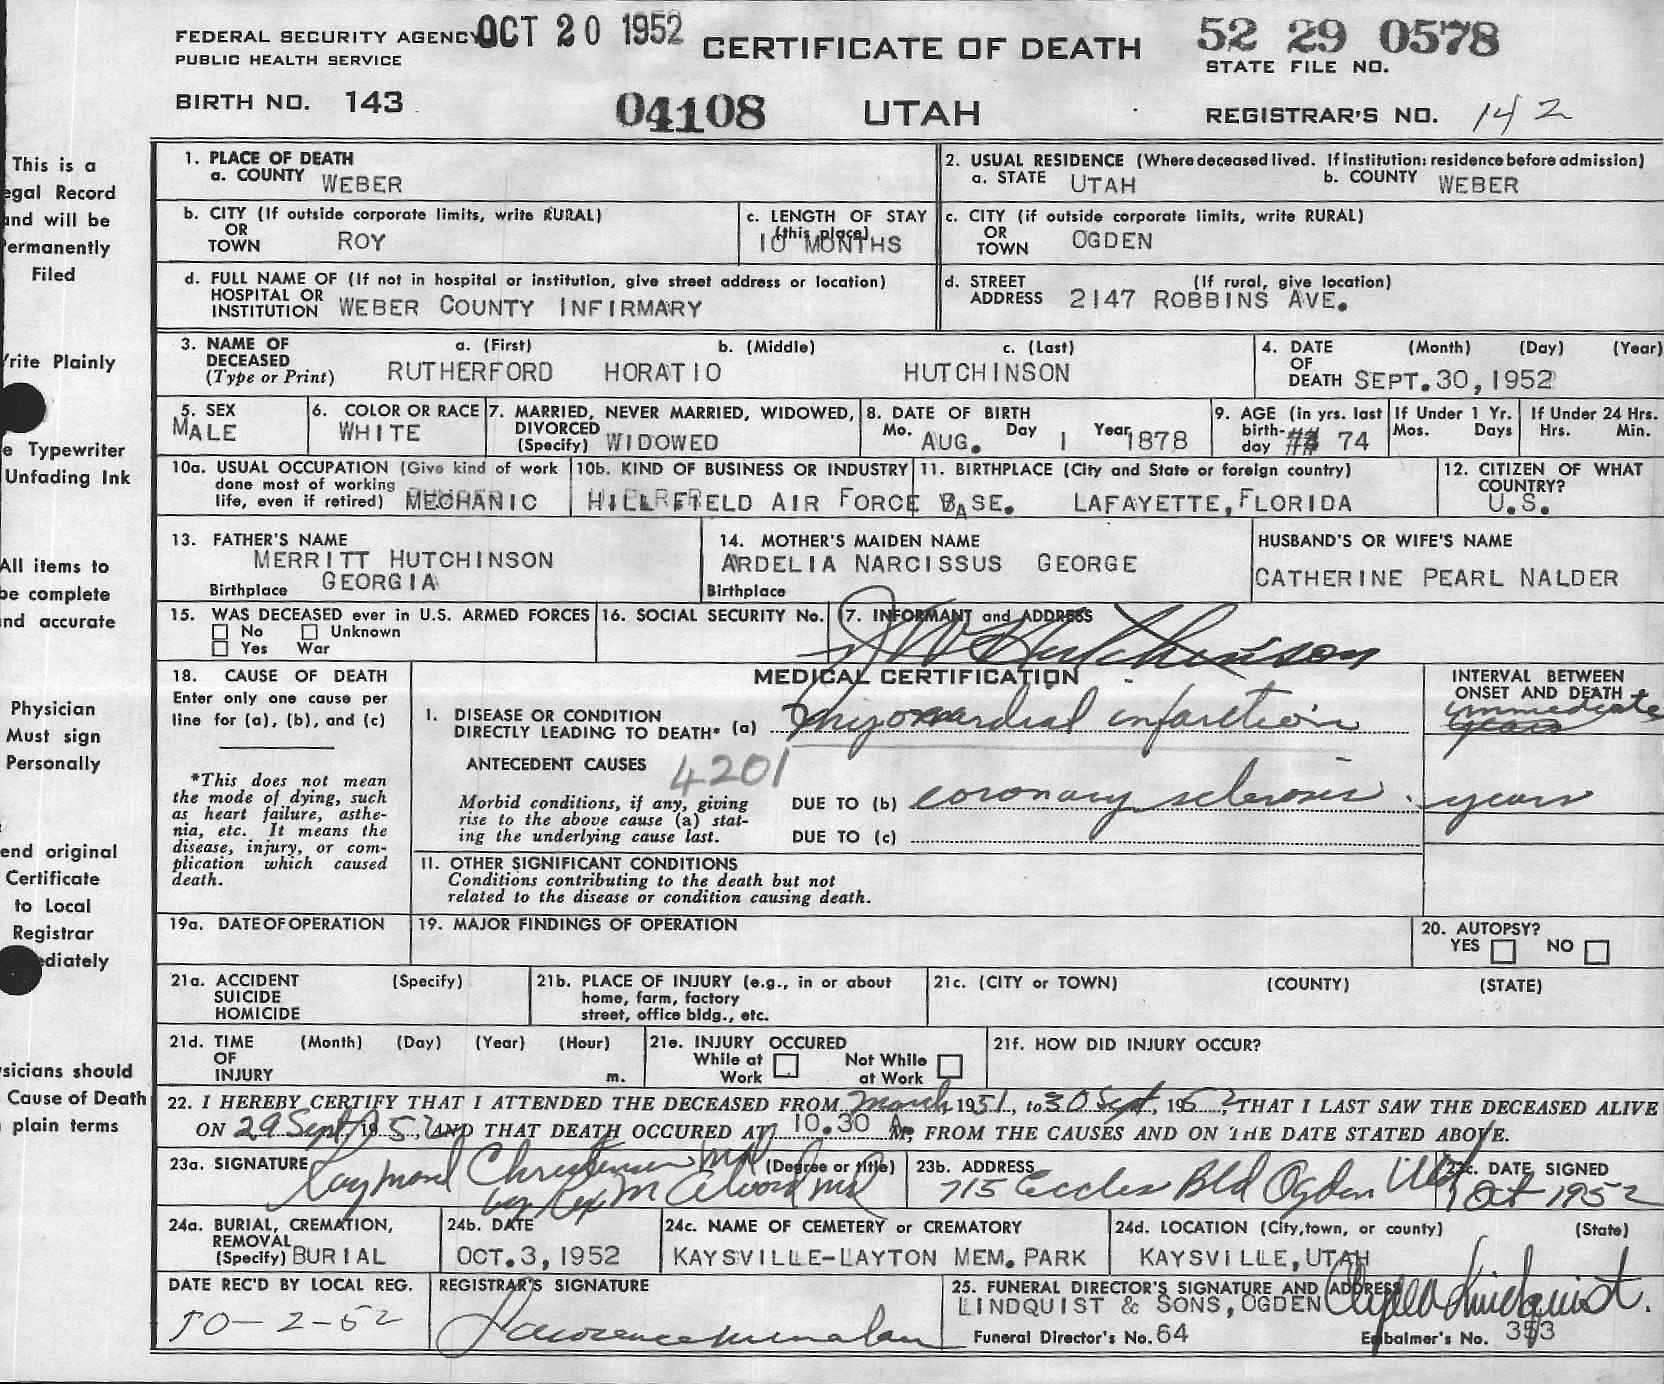 FEDERAL SECURITY AGENCY OCT 20 1952 CERTIFICATE OF DEATH 52 29 0578
PUBLIC HEALTH SERVICE STATE FILE NO.
BIRTH NO. 143 04108 UTAH REGISTRAR'S NO. 142
This is a
egal Record
and will be
ermanently
Filed
rite Plainly
e Typewriter
Unfading Ink
All items to
be complete
nd accurate
Physician
Must sign
Personally
end original
Certificate
to Local
Registrar
ediately
sicians should
Cause of Death
plain terms
1. PLACE OF DEATH
a. COUNTY WEBER
2. USUAL RESIDENCE (Where deceased lived. If institution: residence before admission)
a. STATE UTAH b. COUNTY WEBER
b. CITY (If outside corporate limits, write RURAL)
OR
TOWN ROY
c. LENGTH OF STAY
(this place)
10 MONTHS
c. CITY (if outside corporate limits, write RURAL)
OR
TOWN OGDEN
d. FULL NAME OF (If not in hospital or institution, give street address or location)
HOSPITAL OR
INSTITUTION WEBER COUNTY INFIRMARY
d. STREET (If rural, give location)
ADDRESS 2147 ROBBINS AVE.
3. NAME OF DECEASED a. (First) b. (Middle) c. (Last)
(Type or Print) RUTHERFORD HORATIO HUTCHINSON
4. DATE (Month) (Day) (Year)
OF
DEATH SEPT.30,1952
5. SEX
MALE
6. COLOR OR RACE
WHITE
7. MARRIED, NEVER MARRIED, WIDOWED,
DIVORCED
(Specify) WIDOWED
8. DATE OF BIRTH
Mo. AUG. Day 1 Year 1878
9. AGE (in yrs. last
birth-
day 74
If Under 1 Yr.
Mos. Days
If Under 24 Hrs.
Hrs. Min.
10a. USUAL OCCUPATION (Give kind of work
done most of working
life, even if retired) MECHANIC
10b. KIND OF BUSINESS OR INDUSTRY
HILL FIELD AIR FORCE BASE.
11. BIRTHPLACE (City and State or foreign country)
LAFAYETTE, FLORIDA
12. CITIZEN OF WHAT
COUNTRY?
U.S.
13. FATHER'S NAME
MERRITT HUTCHINSON
Birthplace GEORGIA
14. MOTHER'S MAIDEN NAME
ARDELIA NARCISSUS GEORGE
Birthplace
HUSBAND'S OR WIFE'S NAME
CATHERINE PEARL NALDER
15. WAS DECEASED ever in U.S. ARMED FORCES
No Unknown
Yes War
16. SOCIAL SECURITY No.
17. INFORMANT and ADDRESS
Hutchinson
18. CAUSE OF DEATH
Enter only one cause per
line for (a), (b), and (c)
*This does not mean
the mode of dying, such
as heart failure, asthe-
nia, etc. It means the
disease, injury, or com-
plication which caused
death.
MEDICAL CERTIFICATION
INTERVAL BETWEEN
ONSET AND DEATH
1. DISEASE OR CONDITION
DIRECTLY LEADING TO DEATH* (a) myocardial infarction immediate
years
ANTECEDENT CAUSES 4201
Morbid conditions, if any, giving
rise to the above cause (a) stat-
ing the underlying cause last.
DUE TO (b) coronary sclerosis. years
DUE TO (c)
11. OTHER SIGNIFICANT CONDITIONS
Conditions contributing to the death but not
related to the disease or condition causing death.
19a. DATE OF OPERATION
19. MAJOR FINDINGS OF OPERATION
20. AUTOPSY?
YES NO
21a. ACCIDENT (Specify)
SUICIDE
HOMICIDE
21b. PLACE OF INJURY (e.g., in or about
home, farm, factory
street, office bldg., etc.
21c. (CITY or TOWN) (COUNTY) (STATE)
21d. TIME (Month) (Day) (Year) (Hour)
OF
INJURY m.
21e. INJURY OCCURED
While at Work
Not While at Work
21f. HOW DID INJURY OCCUR?
22. I HEREBY CERTIFY THAT I ATTENDED THE DECEASED FROM March, 1951, to 30 Sept, 1952, THAT I LAST SAW THE DECEASED ALIVE
ON 29 Sept, 1952, AND THAT DEATH OCCURED AT 10.30 A M, FROM THE CAUSES AND ON THE DATE STATED ABOVE.
23a. SIGNATURE (Degree or title)
Raymond Christensen MD
by Rex M Alvord MD
23b. ADDRESS
715 Eccles Bld Ogden Utah
23c. DATE SIGNED
1 Oct 1952
24a. BURIAL, CREMATION,
REMOVAL
(Specify) BURIAL
24b. DATE
OCT.3,1952
24c. NAME OF CEMETERY or CREMATORY
KAYSVILLE-LAYTON MEM. PARK
24d. LOCATION (City, town, or county) (State)
KAYSVILLE, UTAH
DATE REC'D BY LOCAL REG.
10-2-52
REGISTRAR'S SIGNATURE
25. FUNERAL DIRECTOR'S SIGNATURE AND ADDRESS
LINDQUIST & SONS, OGDEN Lindquist.
Funeral Director's No. 64 Embalmer's No. 353